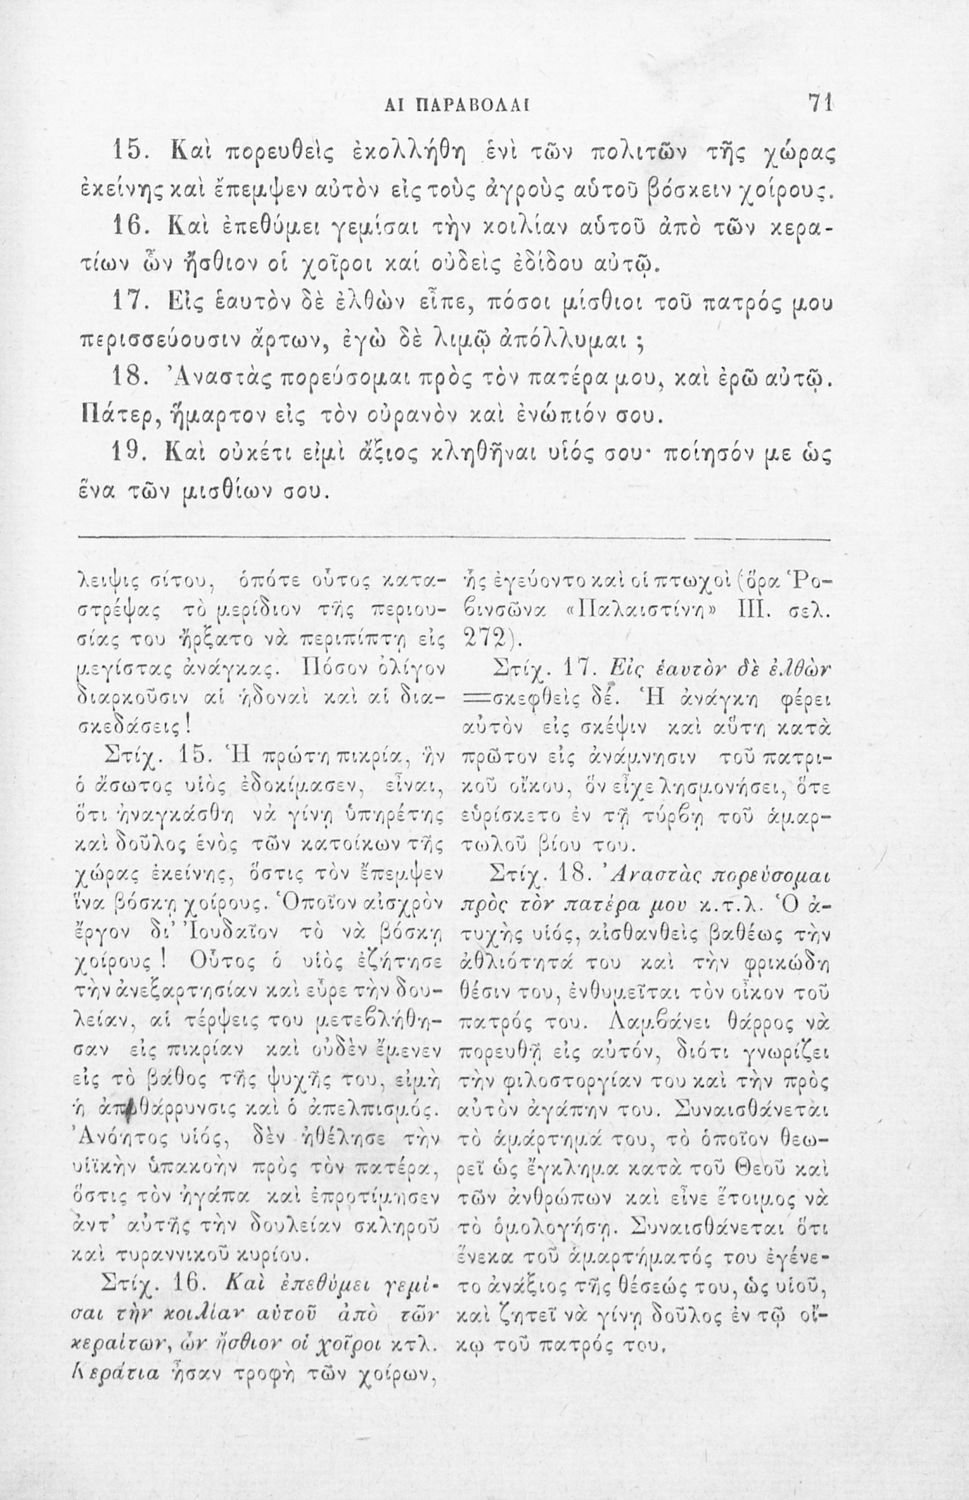 ΑΙ ΠΑΡΑΒΟΛΑΙ 71
15. Καὶ πορευθεὶς ἐκολλήθη ἑνὶ τῶν πολιτῶν τῆς χώρας
ἐκείνης καὶ ἔπεμψεν αὐτὸν εἰς τοὺς ἀγροὺς αὑτοῦ βόσκειν χοίρους.
16. Καὶ ἐπεθύμει γεμίσαι τὴν κοιλίαν αὑτοῦ ἀπὸ τῶν κερα-
τίων ὧν ἤσθιον οἱ χοῖροι καί οὐδεὶς ἐδίδου αὐτῷ.
17. Εἰς ἑαυτὸν δὲ ἐλθὼν εἶπε, πόσοι μίσθιοι τοῦ πατρός μου
περισσεύουσιν ἄρτων, ἐγὼ δὲ λιμῷ ἀπόλλυμαι ;
18. Ἀναστὰς πορεύσομαι πρὸς τὸν πατέρα μου, καὶ ἐρῶ αὐτῷ.
Πάτερ, ἥμαρτον εἰς τὸν οὐρανὸν καὶ ἐνώπιόν σου.
19. Καὶ οὐκέτι εἰμὶ ἄξιος κληθῆναι υἱός σου· ποίησόν με ὡς
ἕνα τῶν μισθίων σου.
λειψις σίτου, ὁπότε οὗτος κατα-
στρέψας τὸ μερίδιον τῆς περιου-
σίας του ἤρξατο νὰ περιπίπτῃ εἰς
μεγίστας ἀνάγκας. Πόσον ὀλίγον
διαρκοῦσιν αἱ ἡδοναὶ καὶ αἱ δια-
σκεδάσεις !
Στίχ. 15. Ἡ πρώτη πικρία, ἣν
ὁ ἄσωτος υἱὸς ἐδοκίμασεν, εἶναι,
ὅτι ἠναγκάσθη νὰ γίνῃ ὑπηρέτης
καὶ δοῦλος ἑνὸς τῶν κατοίκων τῆς
χώρας ἐκείνης, ὅστις τὸν ἔπεμψεν
ἵνα βόσκῃ χοίρους. Ὁποῖον αἰσχρὸν
ἔργον δι' Ἰουδαῖον τὸ νὰ βόσκῃ
χοίρους ! Οὗτος ὁ υἱὸς ἐζήτησε
τὴν ἀνεξαρτησίαν καὶ εὗρε τὴν δου-
λείαν, αἱ τέρψεις του μετεβλήθη-
σαν εἰς πικρίαν καὶ οὐδὲν ἔμενεν
εἰς τὸ βάθος τῆς ψυχῆς του, εἰμὴ
ἡ ἀποθάρρυνσις καὶ ὁ ἀπελπισμός.
Ἀνόητος υἱός, δὲν ἠθέλησε τὴν
υἱϊκὴν ὑπακοὴν πρὸς τὸν πατέρα,
ὅστις τὸν ἠγάπα καὶ ἐπροτίμησεν
ἀντ' αὐτῆς τὴν δουλείαν σκληροῦ
καὶ τυραννικοῦ κυρίου.
Στίχ. 16. Καὶ ἐπεθύμει γεμί-
σαι τὴν κοιλίαν αὑτοῦ ἀπὸ τῶν
κεραίτων, ὧν ἤσθιον οἱ χοῖροι κτλ.
Κεράτια ἦσαν τροφὴ τῶν χοίρων,
ἧς ἐγεύοντο καὶ οἱ πτωχοὶ (ὅρα Ῥο-
βινσῶνα «Παλαιστίνη» III. σελ.
272).
Στίχ. 17. Εἰς ἑαυτὸν δὲ ἐλθὼν
=σκεφθεὶς δέ. Ἡ ἀνάγκη φέρει
αὐτὸν εἰς σκέψιν καὶ αὕτη κατὰ
πρῶτον εἰς ἀνάμνησιν τοῦ πατρι-
κοῦ οἴκου, ὃν εἶχε λησμονήσει, ὅτε
εὑρίσκετο ἐν τῇ τύρβῃ τοῦ ἁμαρ-
τωλοῦ βίου του.
Στίχ. 18. Ἀναστὰς πορεύσομαι
πρὸς τὸν πατέρα μου κ.τ.λ. Ὁ ἀ-
τυχὴς υἱός, αἰσθανθεὶς βαθέως τὴν
ἀθλιότητά του καὶ τὴν φρικώδη
θέσιν του, ἐνθυμεῖται τὸν οἶκον τοῦ
πατρός του. Λαμβάνει θάρρος νὰ
πορευθῇ εἰς αὐτόν, διότι γνωρίζει
τὴν φιλοστοργίαν του καὶ τὴν πρὸς
αὐτὸν ἀγάπην του. Συναισθάνεται
τὸ ἁμάρτημά του, τὸ ὁποῖον θεω-
ρεῖ ὡς ἔγκλημα κατὰ τοῦ Θεοῦ καὶ
τῶν ἀνθρώπων καὶ εἶνε ἕτοιμος νὰ
τὸ ὁμολογήσῃ. Συναισθάνεται ὅτι
ἕνεκα τοῦ ἁμαρτήματός του ἐγένε-
το ἀνάξιος τῆς θέσεώς του, ὡς υἱοῦ,
καὶ ζητεῖ νὰ γίνῃ δοῦλος ἐν τῷ οἴ-
κῳ τοῦ πατρός του.